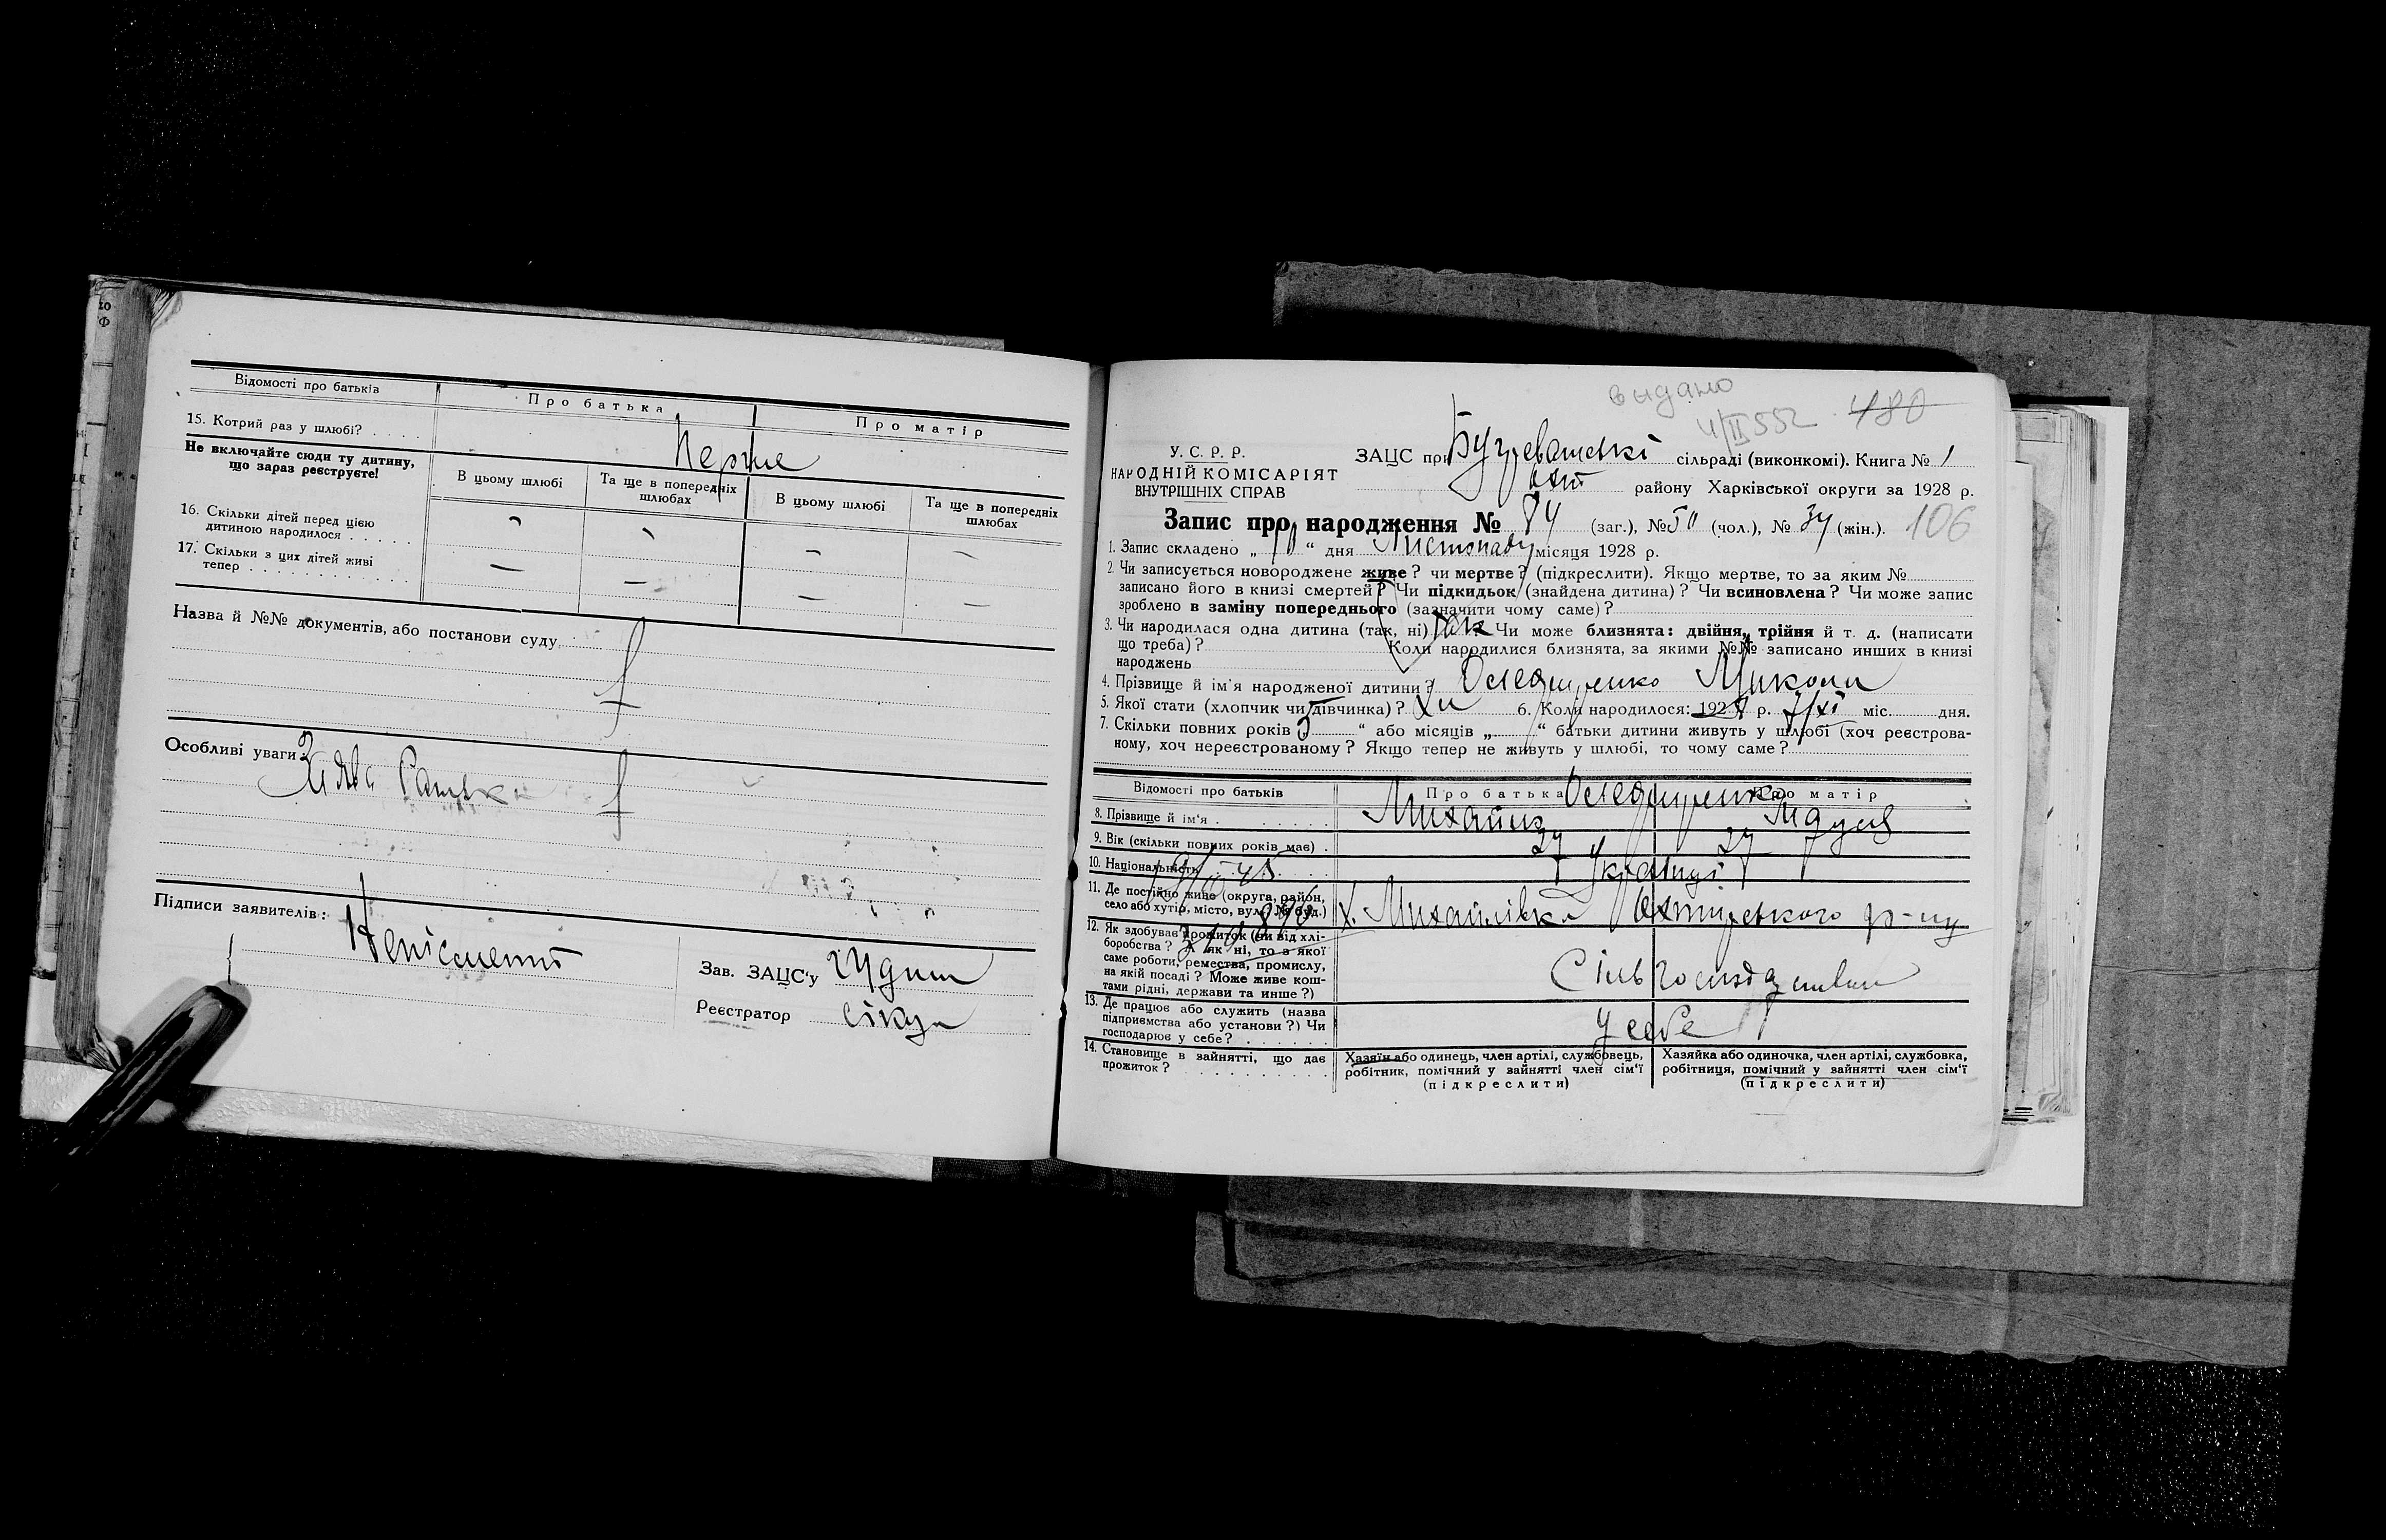 Відомості про батьків
Про батька
Про матір
15. Котрий раз у шлюбі? . . . .
Перше
Не включайте сюди ту дитину,
що зараз реєструєте!
В цьому шлюбі
Та ще в попередніх
шлюбах
В цьому шлюбі
Та ще в попередніх
шлюбах
16. Скільки дітей перед цією
дитиною народилося . . . . .
— — — —
17. Скільки з цих дітей живі
тепер . . . . . . . . . . . .
— — — —
Назва й №№ документів, або постанови суду
Особливі уваги:
Заява батька
Підписи заявителів:
Неписьмений
Зав. ЗАЦС'у
Реєстратор
выдано
4/II 552
480
У. С. Р. Р.
НАРОДНІЙ КОМІСАРІЯТ
ВНУТРІШНІХ СПРАВ
ЗАЦС при сільраді (виконкомі). Книга № 1
Охт району Харківської округи за 1928 р.
Запис про народження № 84 (заг.), № 50 (чол.), № 34 (жін.).
106
1. Запис складено „10“ дня Листопаду місяця 1928 р.
2. Чи записується новороджене живе? чи мертве? (підкреслити). Якщо мертве, то за яким №
записано його в книзі смертей? Чи підкидьок (знайдена дитина)? Чи всиновлена? Чи може запис
зроблено в заміну попереднього (зазначити чому саме)?
3. Чи народилася одна дитина (так, ні) так Чи може близнята: двійня, трійня й т. д. (написати
що треба)? Коли народилися близнята, за якими №№ записано инших в книзі
народжень
4. Прізвище й ім'я народженої дитини? Микола
5. Якої статі (хлопчик чи дівчинка)? 6. Коли народилося: 1928 р. 7/XI міс. дня.
7. Скільки повних років 5 “ або місяців „ “ батьки дитини живуть у шлюбі (хоч реєстрова-
ному, хоч нереєстрованому? Якщо тепер не живуть у шлюбі, то чому саме?
Відомості про батьків
Про батька
Про матір
8. Прізвище й ім'я . . . . . .
Михайло
9. Вік (скільки повних років має) .
27 27
10. Національність . . . . . .
Українці
11. Де постійно живе (округа, район,
село або хутір, місто, вул., № буд.)
х. Михайлівка Охтирського р-ну
12. Як здобуває прожиток (чи від хлі-
боробства? А як ні, то з якої
саме роботи, ремества, промислу,
на якій посаді? Може живе кош-
тами рідні, держави та инше?)
13. Де працює або служить (назва
підприємства або установи?) Чи
господарює у себе? . . . . . .
У себе
14. Становище в зайнятті, що дає
прожиток? . . . . . . . . . .
Хазяїн або одинець, член артілі, службовець,
робітник, помічний у зайнятті член сім'ї
(підкреслити)
Хазяйка або одиночка, член артілі, службовка,
робітниця, помічний у зайнятті член сім'ї
(підкреслити)